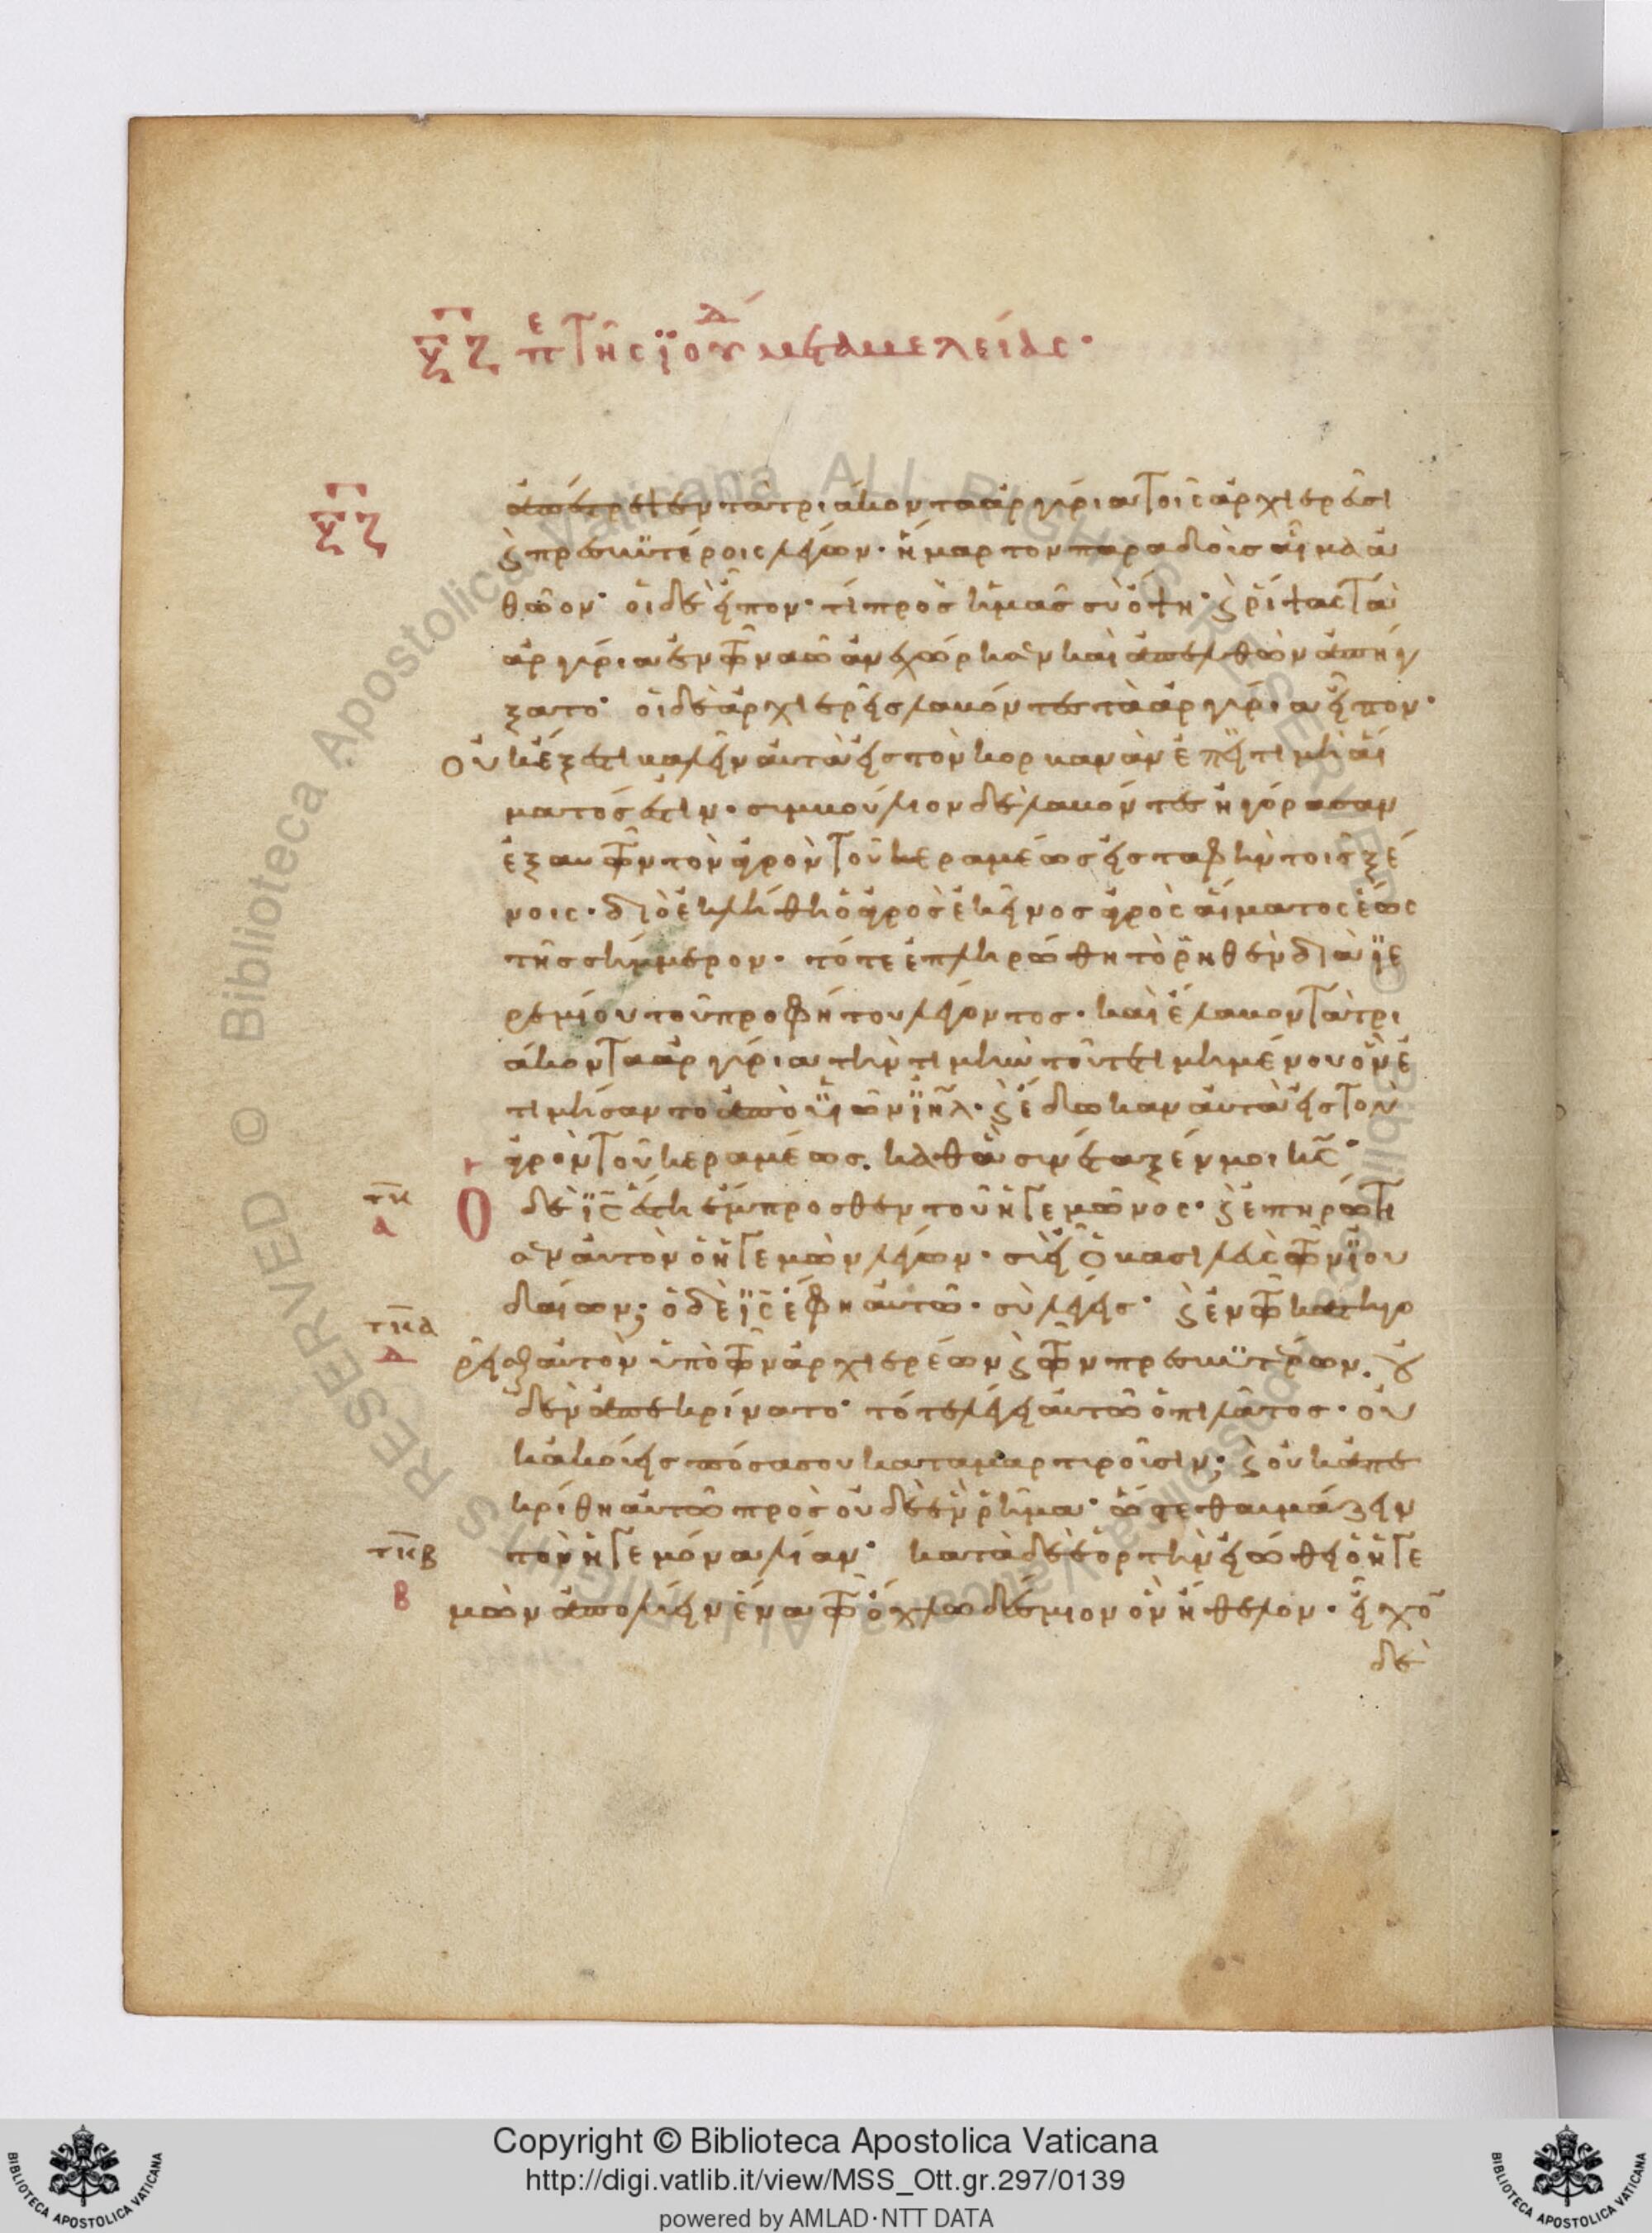 ξζ πε τῆς ϊούδ μεταμελείας·
ξζ
ἀπέστρεψεν τὰ τριάκοντα ἀργύρια τοῖς ἀρχιερεῦσι
ϛ πρεσβυτέροις λέγων· ἥμαρτον παραδοὺς αἷμα ἀ
θῶον· οἱ δὲ εἶπον· τί πρὸς ἡμᾶς σὺ ὄψη· ϛ ῥίψας τὰ
ἀργύρια ἐν τῶ ναῶ ἀνεχώρησεν καὶ ἀπελθὼν ἀπήγ
ξατο· οἱ δὲ ἀρχιερεῖς λαβόντες τὰ ἀργύρια εἶπον·
οὐκ ἔξεστι βαλεῖν αὐτὰ εἰς τὸν κορβανὰν ἐπεὶ τιμὴ αἵ
ματός ἐστιν· συμβούλιον δὲ λαβόντες ἠγόρασαν
ἐξ αὐτῶν τὸν ἀγρὸν τοῦ κεραμέως εἰς ταφὴν τοῖς ξέ
νοις· διὸ ἐκλήθη ὁ ἀγρὸς ἐκεῖνος ἀγρὸς αἵματος ἕως
τῆς σήμερον· τότε ἐπληρώθη τὸ ῥηθὲν διὰ ϊε
ρεμίου τοῦ προφήτου λέγοντος· καὶ ἔλαβον τὰ τρι
άκοντα ἀργύρια τὴν τιμὴν τοῦ τετιμημένου ὃν ἐ
τιμήσαντο ἀπὸ υἱῶν ϊηλ· ϛ ἔδωκαν αὐτὰ εἰς τὸν
ἀγρὸν τοῦ κεραμέως. καθὰ συνέταξέν μοι κς·
τκ
α
Ο δὲ ϊς ἔστη ἔμπροσθεν τοῦ ἡγεμῶνος· ϛ ἐπηρώτη
σεν αὐτὸν ὁ ἡγεμὼν λέγων· σὺ εἶ ὁ βασιλεὺς τῶν ϊου
δαίων; ὁ δὲ ϊς ἔφη αὐτῶ· σὺ λέγεις· ϛ ἐν τῶ κατηγο
τκα
δ
ρεῖσθαι αὐτὸν ὑπὸ τῶν ἀρχιερέων ϛ τῶν πρεσβυτέρων. οὐ
δὲν ἀπεκρίνατο· τότε λέγει αὐτῶ ὁ πιλᾶτος· οὐ
κ ἀκούεις πόσα σου καταμαρτυροῦσιν; ϛ οὐκ ἀπε
κρίθη αὐτῶ πρὸς οὐδὲ ἓν ῥῆμα· ὥστε θαυμάζειν
τκβ
β
τὸν ἡγεμόνα λίαν· κατὰ δὲ ἑορτὴν εἰώθει ὁ ἡγε
μὼν ἀπολύειν ἕνα τῶ ὄχλω δέσμιον ὃν ἤθελον· εἶχο
δὲ
Copyright © Biblioteca Apostolica Vaticana
http://digi.vatlib.it/view/MSS_Ott.gr.297/0139
powered by AMLAD·NTT DATA
BIBLIOTECA APOSTOLICA VATICANA
BIBLIOTECA APOSTOLICA VATICANA